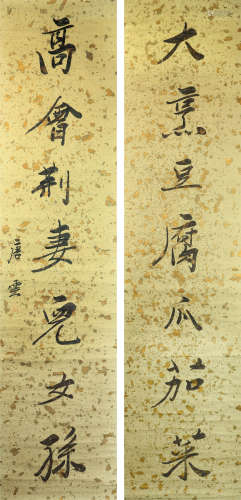 大烹豆腐瓜茄菜
高會荆妻兒女孫
唐雲